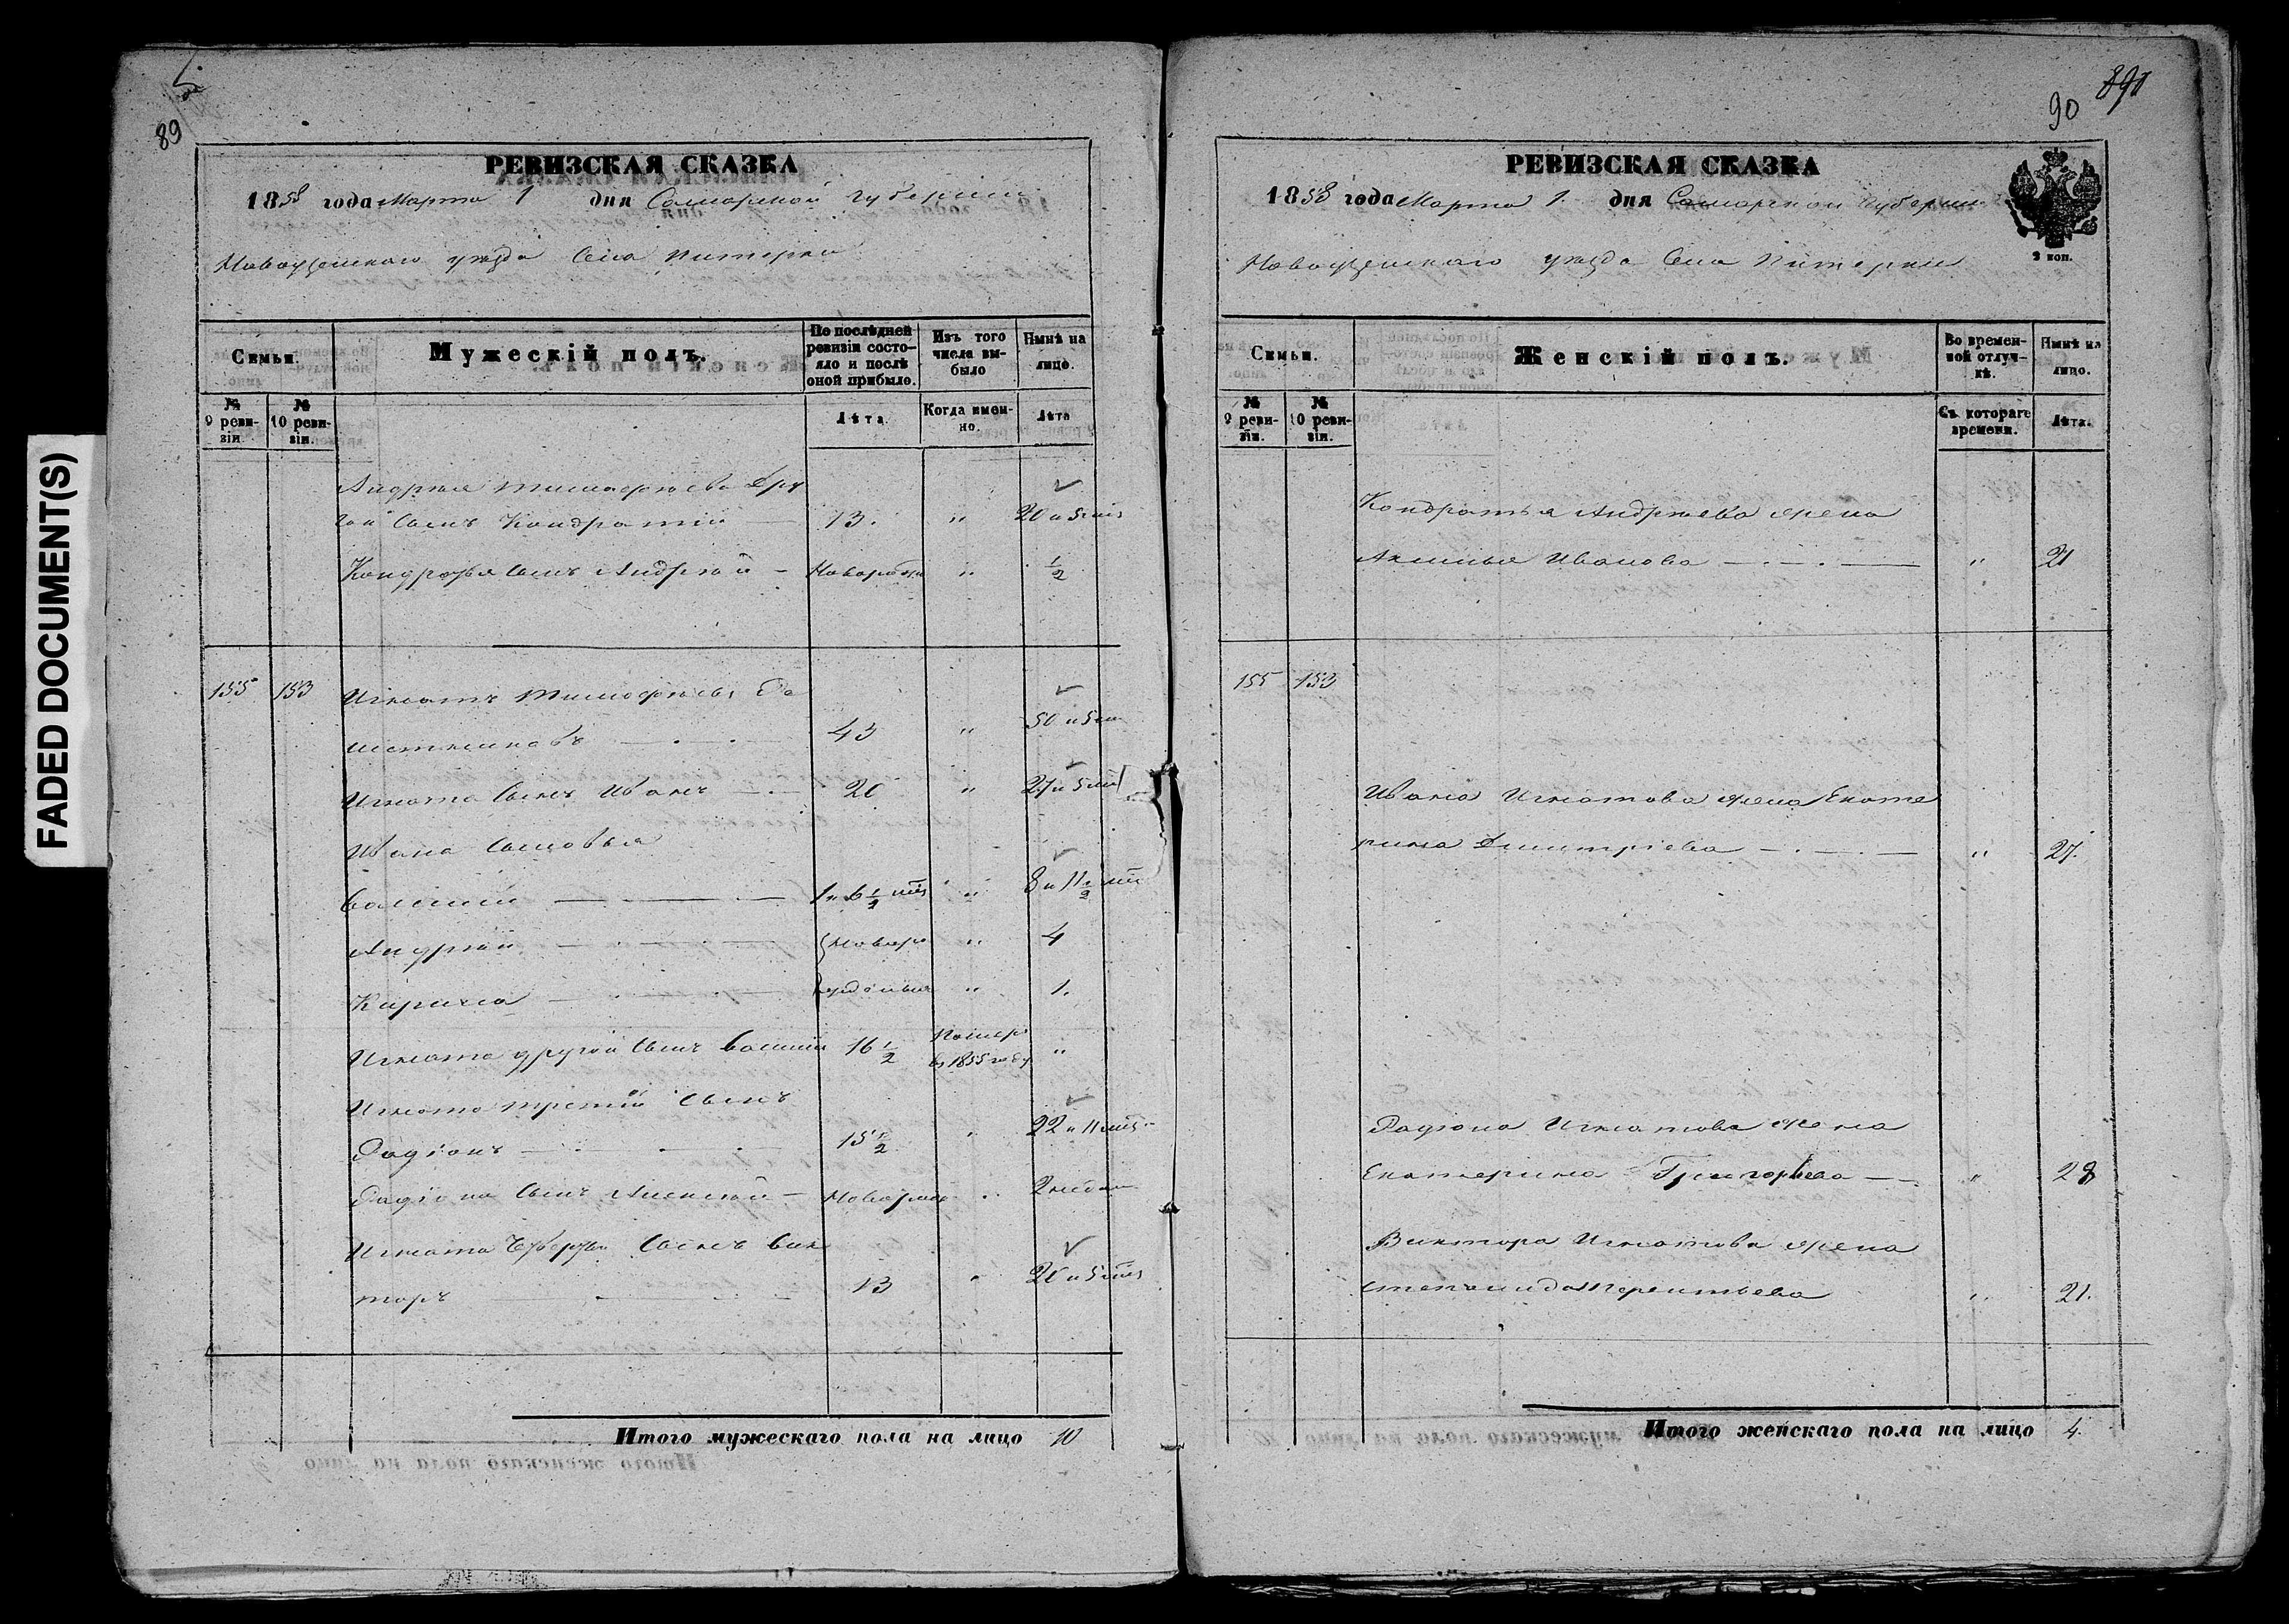 FADED DOCUMENT(S)
89
РЕВИЗСКАЯ СКАЗКА
1858 года Марта 1 дня Самарской губернии
Новоузенскаго уезда Села Питерки
Семьи.
Мужескій полъ.
По послѣдней ревизіи состояло и послѣ оной прибыло.
Изъ того числа выбыло
Нынѣ на лицо.
№ 9 ревизіи.
№ 10 ревизіи.
Лѣта.
Когда именно.
Лѣта
Андрея Тимофеева дру
гой сынъ Кондратій 13. " 20 и 5 мѣс
Кондратья сынъ Андрей Новорож " 1/2
155 153 Игнатъ Тимофеевъ
43 " 50 и 5 м
Игната сынъ Иванъ 20 " 27 и 5 мѣс
Ивана сыновья
Василий 1 и 6 1/2 мѣс " 8 и 11 1/2 мѣс
Андрей Новоро " 4
Кирила жденные " 1.
Игната другой сынъ Василий 16 1/2 Померъ в 1855 году "
Игната третій сынъ
Радіонъ 15 1/2 " 22 и 11 мѣс
Радіона сынъ Алексей Новорож " 2 недели
Игната Четверты сынъ Вик
торъ 13 " 20 и 5 мѣс
Итого мужескаго пола на лицо 10
90
РЕВИЗСКАЯ СКАЗКА
1858 года Марта 1. дня Самарской Губернии
Новоузенскаго уезда Села Питерки
2 коп.
Семьи.
Женскій полъ.
Во временной отлучкѣ.
Нынѣ на лицо.
№ 9 ревизіи.
№ 10 ревизіи.
Съ котораго времени.
Лѣта.
Кондратья Андреева жена
Акилина Иванова " 21
155 153
Ивана Игнатова жена Екате
рина Дмитріева " 27.
Радіона Игнатова жена
Екатерина Григорьева " 28
Виктора Игнатова жена
Степанида Терентьева " 21.
Итого женскаго пола на лицо 4.